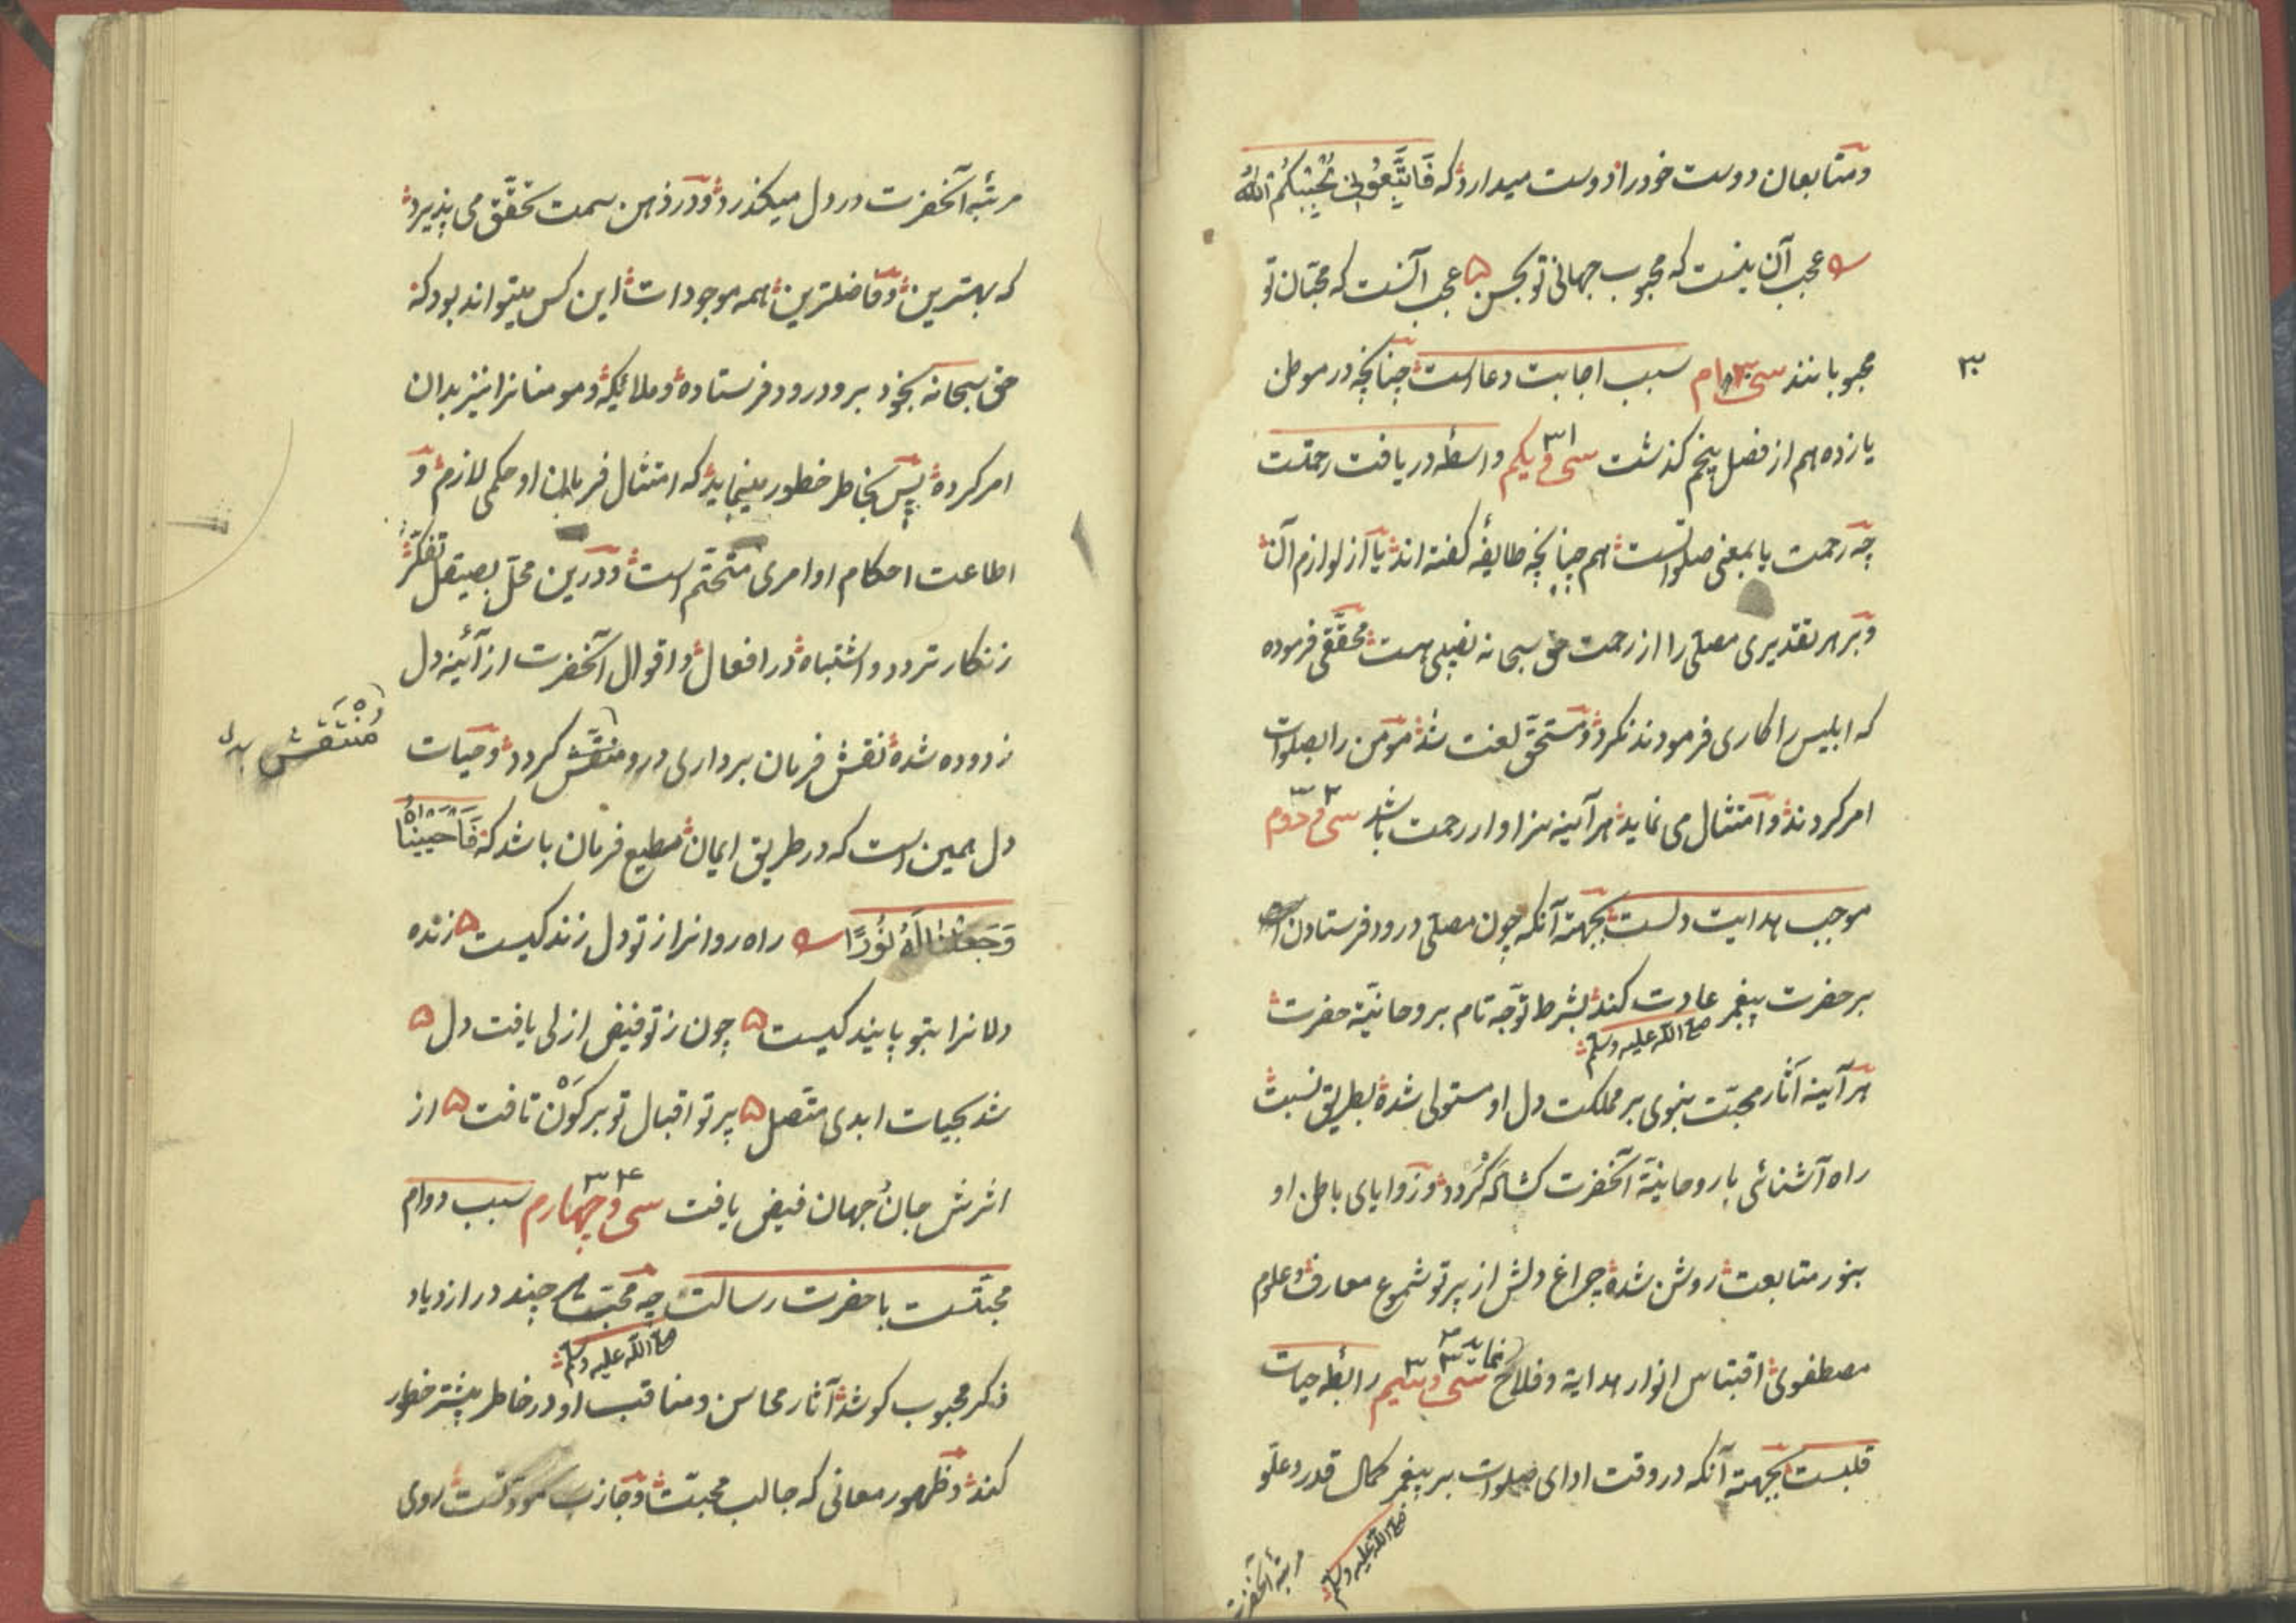 ومتابعان دوست خود را دوست میدارد که فَاتَّبِعُونِی یُحْبِبْکُمُ اللهُ
عجب آن نیست که محبوب جهانی تو بحسن ۵ عجب آنست که محبّان تو
محبوبانند سی ۳۰ ام سبب اجابت دعاست چنانچه در موطن
۳۰
یازدهم از فصل پنجم گذشت سی و یکم ۳۱ واسطه دریافت رحمتست
چه رحمت یا بمعنی صلواتست هم چنانچه طایفهٔ گفته‌اند یا از لوازم آن
وبر هر تقدیری مصلّی را از رحمت حق سبحانه نصیبی هست محقّقی فرموده
که ابلیس را کاری فرمودند نکرد و مستحقّ لعنت شد مؤمن را بصلوات
امر کردند و امتثال می نماید هر آینه سزاوار رحمت باشد سی و دوم ۳۲
موجب هدایت دلست بجهتهٔ آنکه چون مصلّی درود فرستادن
بر حضرت پیغمبر عادت کند بشرط توجّه تام بروحانیّهٔ حضرت
صلی الله علیه وسلم
هر آینه آثار محبّت نبوی بر مملکت دل او مستولی شده بطریق نسبت
راه آشنائی با روحانیّهٔ آنحضرت کشاده گردد و زوایای باطن او
بنور متابعت روشن شده چراغ دلش از پرتو شموع معارف و علوم
مصطفوی اقتباس انوار هدایة و فلاح نماید سی و سیم ۳۳ رابطهٔ حیات
قلبست بجهتهٔ آنکه در وقت ادای صلوات بر پیغمبر کمال قدر و علوّ
صلی الله علیه وسلم
مرتبهٔ آنحضرت
مرتبهٔ آنحضرت در دل میگذرد و در ذهن سمت تحقّق می پذیرد
که بهترین و فاضلترین همه موجودات این کس میتواند بود که
حق سبحانه بخود برو درود فرستاده و ملائیکه و مومنانرا نیز بدان
امر کرده پس بخاطر خطور مینماید که امتثال فرمان او حکمی لازم و
اطاعت احکام او امری متحتّم است و درین محلّ بصیقل تفکّر
زنکار تردد و اشتباه در افعال و اقوال آنحضرت از آئینهٔ دل
زدوده شده نقش فرمان برداری درو منقّش گردد و حیات
مُنْتَقِش بدل
دل همین است که در طریق ایمان مطیع فرمان باشد که فَاَحْیَیْنَاهُ
وَجَعَلْنَا لَهُ نُورًا راه روانرا ز تو دل زندگیست ۵ زنده
دلانرا بتو پایندگیست ۵ چون ز تو فیض ازلی یافت دل ۵
شد بحیات ابدی متّصل ۵ پرتو اقبال تو بر کَوْن تافت ۵ از
اثرش جان جهان فیض یافت سی و چهارم ۳۴ سبب دوام
محبّتست با حضرت رسالت چه محبّت هر چند در ازدیاد
صلی الله علیه وسلم
ذکر محبوب کوشد آثار محاسن و مناقب او در خاطر بیشتر خطور
کند و ظهور معانی که جالب محبّت و جاذب مودّتست روی